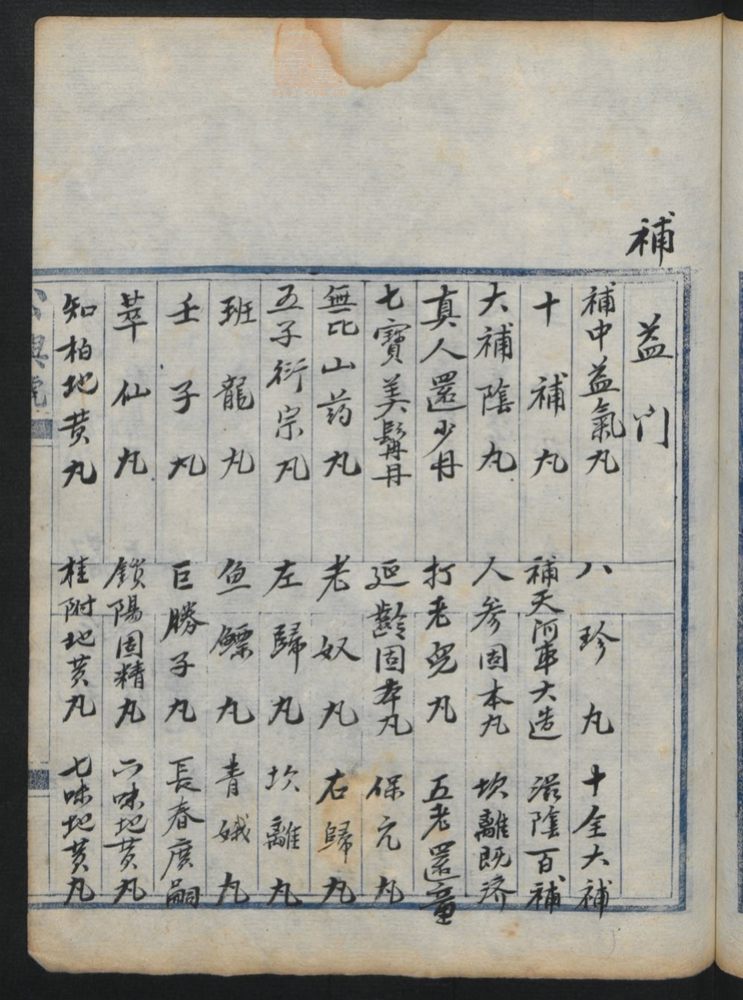 補益門
補中益氣丸 八珍丸 十全大補
十補丸 補天河車大造 滋陰百補
大補陰丸 人参固本丸 坎離既济
真人還少丹 打老兒丸 五老還童
七寳美髯丹 延齡固本丸 保元丸
無比山药丸 老奴丸 右歸丸
五子衍宗丸 左歸丸 坎離丸
班龍丸 鱼鰾丸 青娥丸
壬子丸 巨勝子丸 長春廣嗣
萃仙丸 鎖陽固精丸 六味地黄丸
知柏地黄丸 桂附地黄丸 七味地黄丸